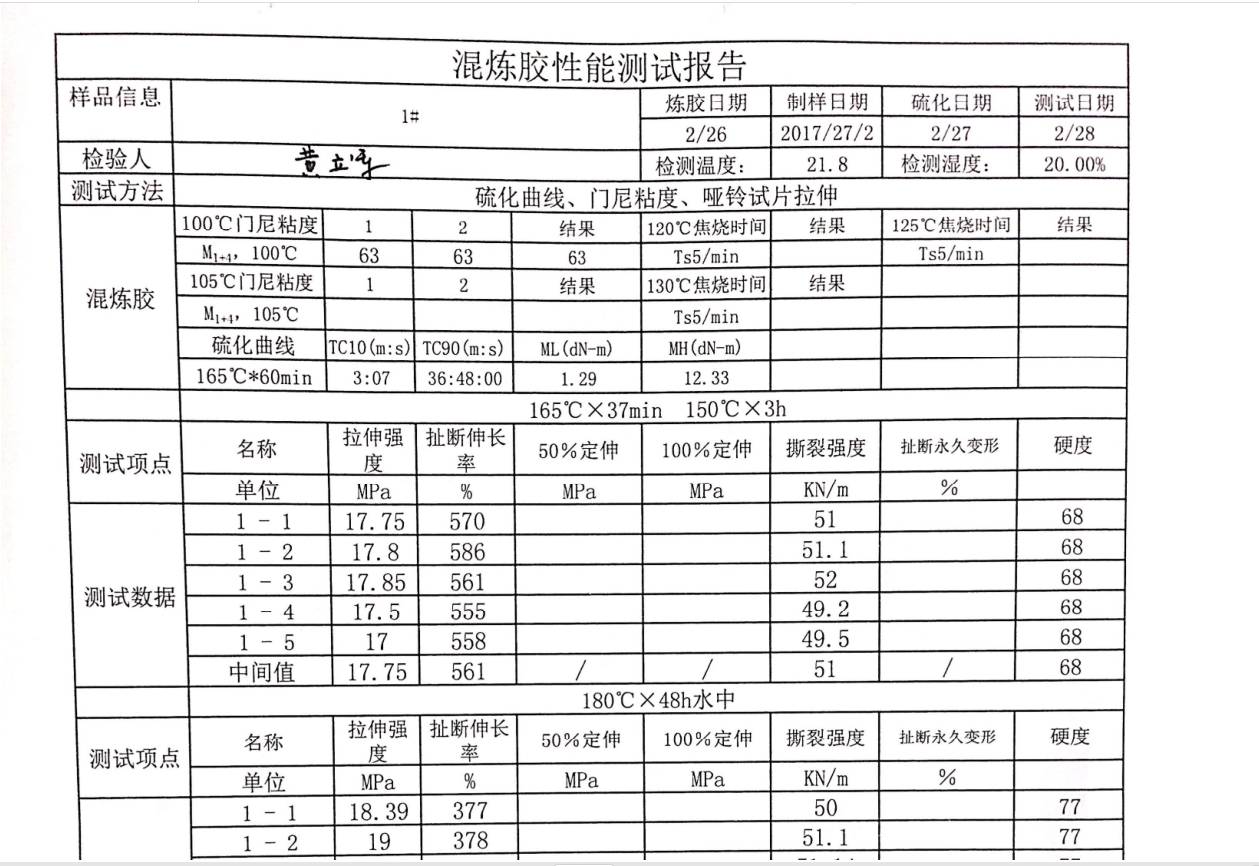 混炼胶性能测试报告
样品信息 1# 炼胶日期 制样日期 硫化日期 测试日期
2/26 2017/27/2 2/27 2/28
检验人 检测温度: 21.8 检测湿度: 20.00%
测试方法 硫化曲线、门尼粘度、哑铃试片拉伸
混炼胶 100℃门尼粘度 1 2 结果 120℃焦烧时间 结果 125℃焦烧时间 结果
M1+4, 100℃ 63 63 63 Ts5/min Ts5/min
105℃门尼粘度 1 2 结果 130℃焦烧时间 结果
M1+4, 105℃ Ts5/min
硫化曲线 TC10(m:s) TC90(m:s) ML(dN-m) MH(dN-m)
165℃*60min 3:07 36:48:00 1.29 12.33
165℃×37min 150℃×3h
测试项点 名称 拉伸强度 扯断伸长率 50%定伸 100%定伸 撕裂强度 扯断永久变形 硬度
单位 MPa % MPa MPa KN/m %
测试数据 1 - 1 17.75 570 51 68
1 - 2 17.8 586 51.1 68
1 - 3 17.85 561 52 68
1 - 4 17.5 555 49.2 68
1 - 5 17 558 49.5 68
中间值 17.75 561 / / 51 / 68
180℃×48h水中
测试项点 名称 拉伸强度 扯断伸长率 50%定伸 100%定伸 撕裂强度 扯断永久变形 硬度
单位 MPa % MPa MPa KN/m %
1 - 1 18.39 377 50 77
1 - 2 19 378 51.1 77